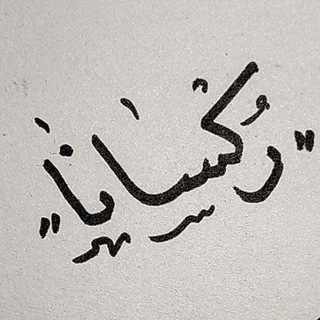 "رُكْسَانَا"